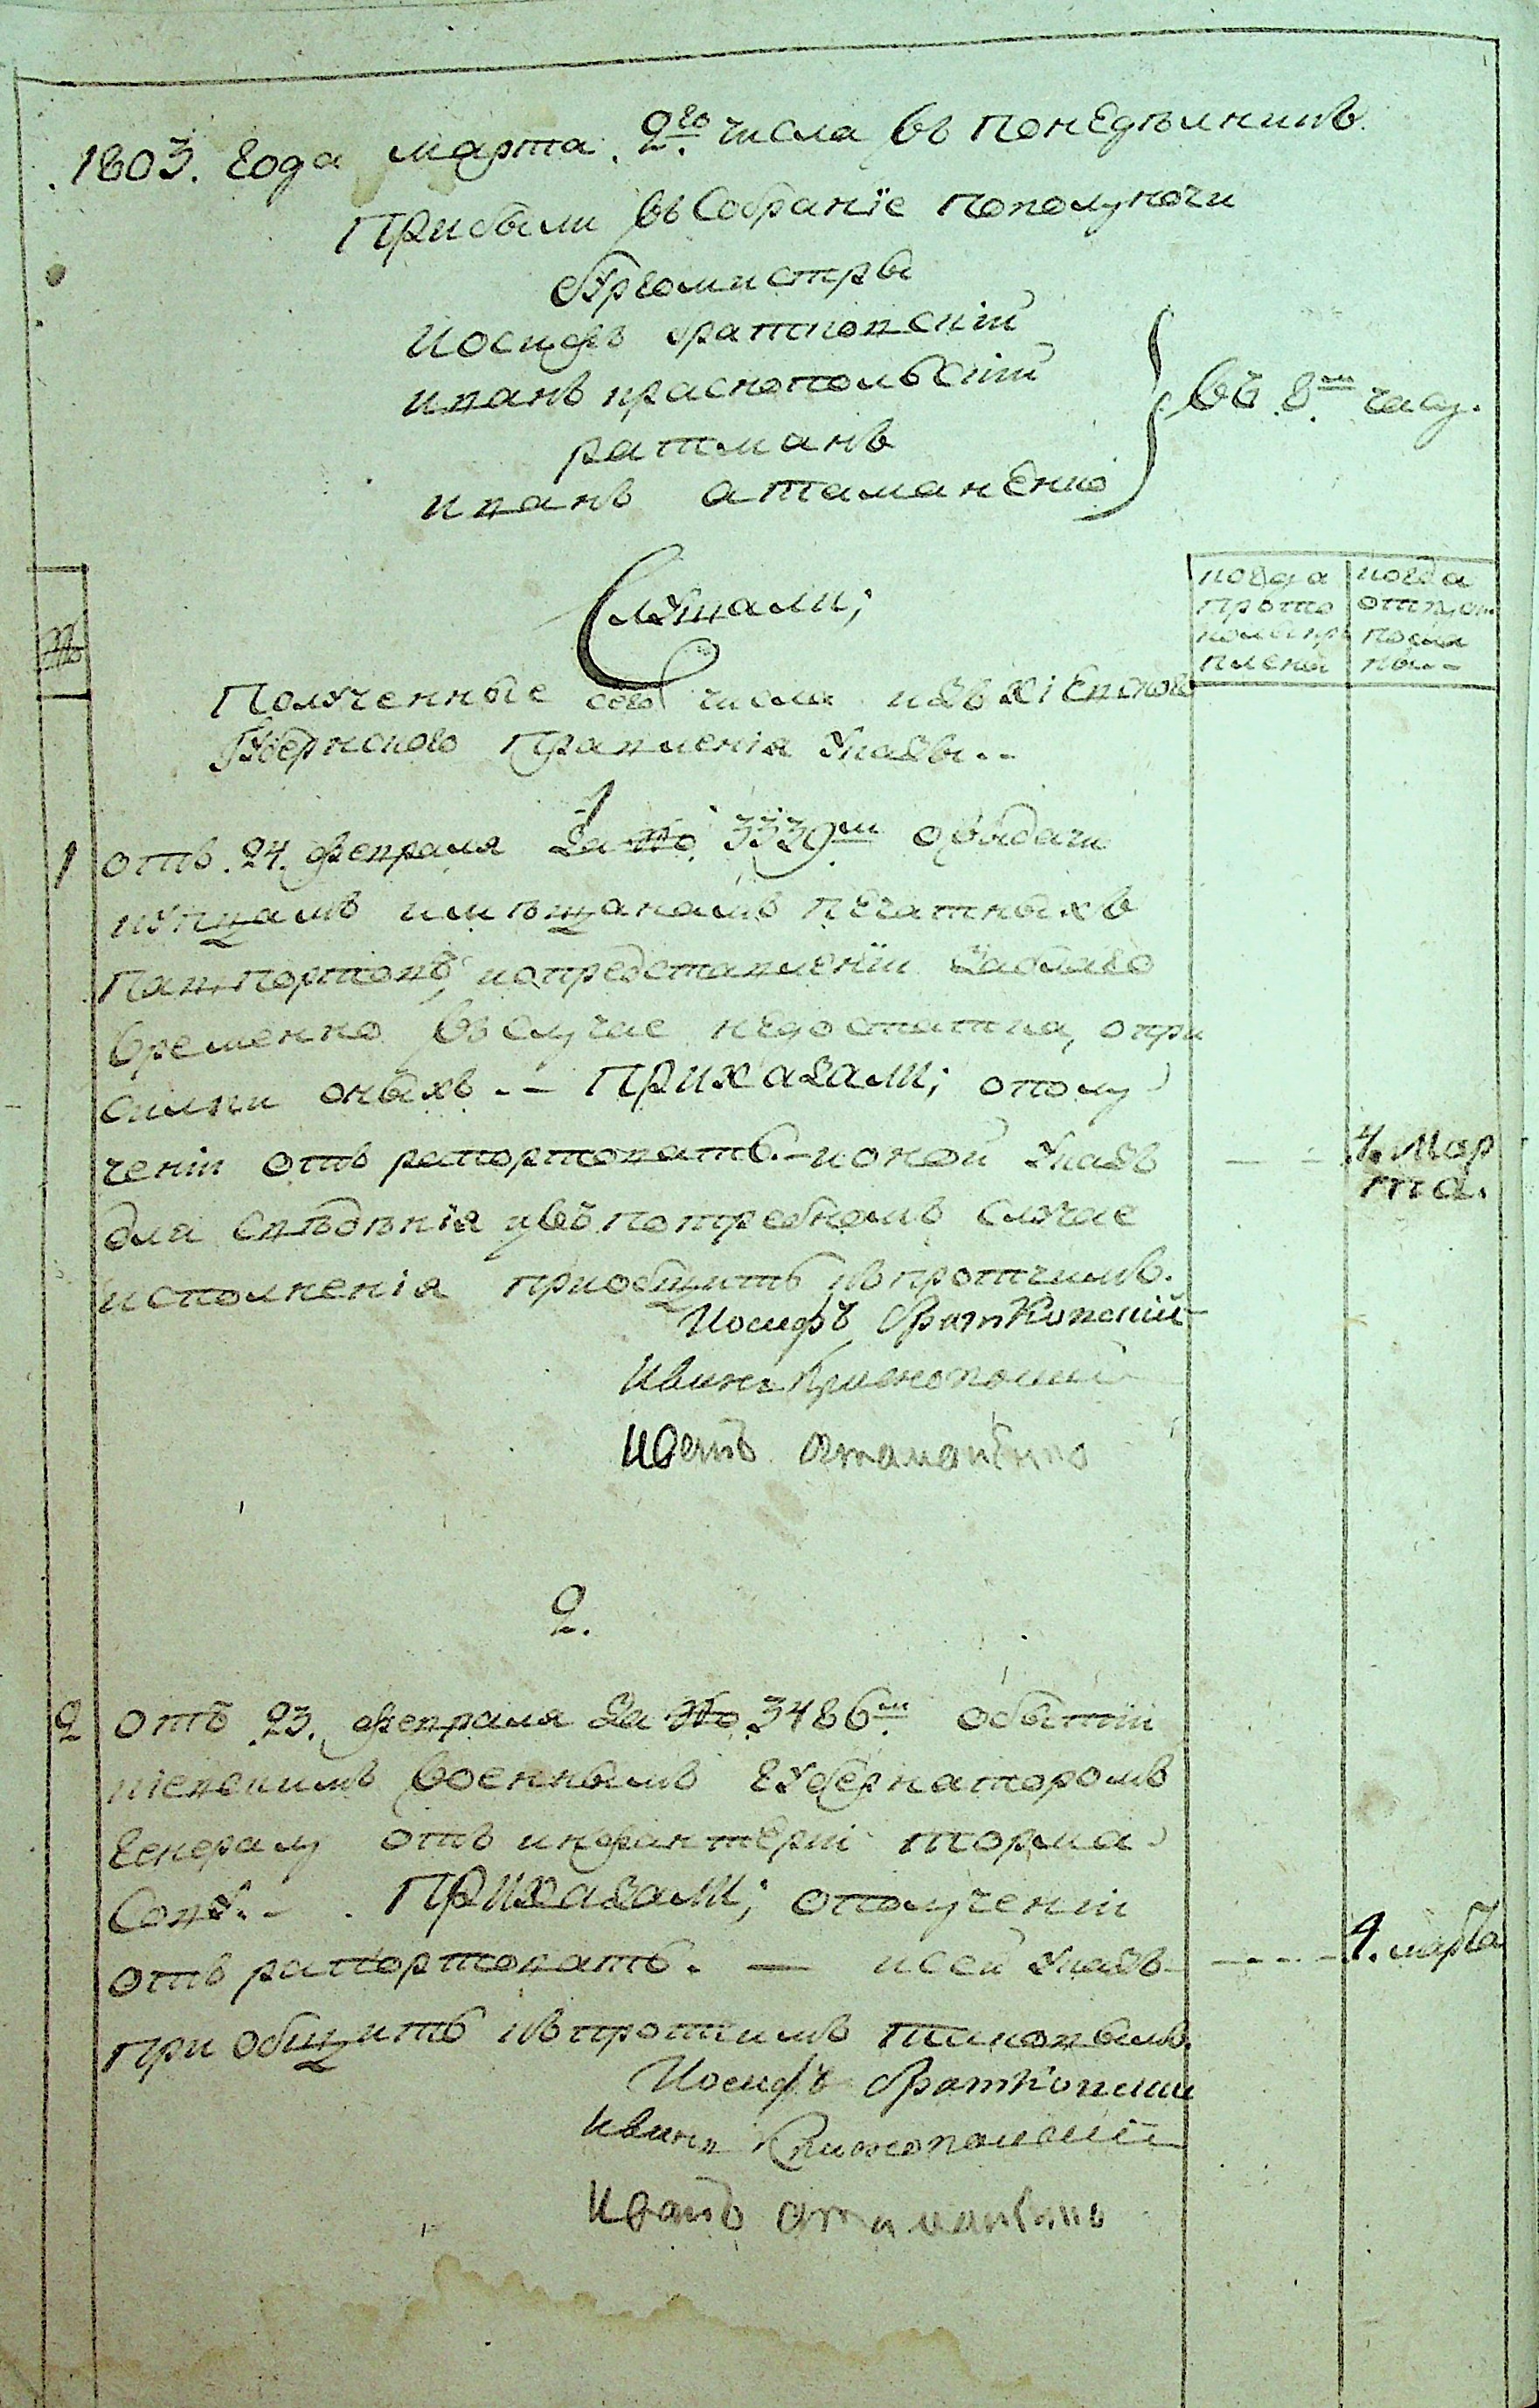 1803. года марта. 2го числа въ понедѣлникъ.
Прибыли въ Собранїе пополуночи
бургомистры
Иосифъ братковский
иванъ краснопольский
въ 8м часу.
ратманъ
иванъ атаманенко
Слушали;
когда прото колъ скр плена
когда отпуск. посла ны.-
№
Полученные сего числа изъ Кіевского
Губернского правленія указы.--
1
1 отъ 24. февраля за № 3339м овыдачи
купцамъ имѣщанамъ печатныхъ
пашпортовъ, ипредставленїи заблаго
временно въслучае недостатка, опри
силки оныхъ.-- Приказали; ополу
ченіи отъ рапортовать.-ионой указъ
4. Мар
для свѣдѣнїя ивъ потребномъ случае
та.
исполненія приобщить къпротчимъ.
Иосифъ братковский
Иванъ Краснополский
Иванъ атаманенко
2.
2 отъ 23. февраля за № 3486м обытіи
кіевскимъ военнымъ губернаторомъ
генералу отъ инфантеріи торма
Сову.- . Приказали; ополученіи
отъ рапортовать. — исей указъ
4. марта
приобщить къпротчимъ таковымъ.
Иосифъ братковский
Иванъ Краснополский
Иванъ атаманенко